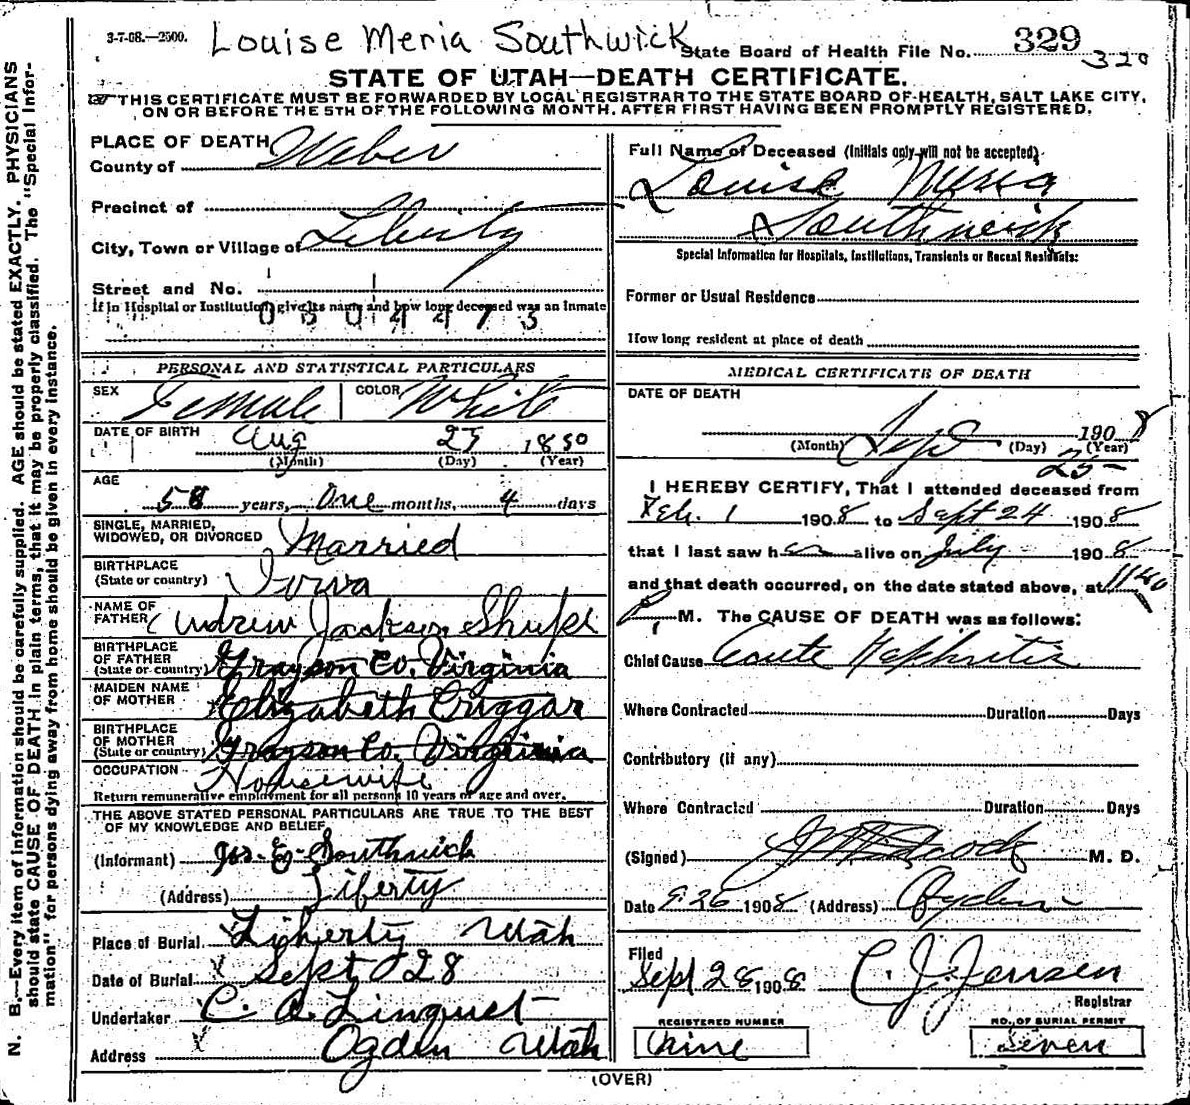 3-7-08.—2500.
Louise Meria Southwick
State Board of Health File No. 329
320
STATE OF UTAH—DEATH CERTIFICATE.
THIS CERTIFICATE MUST BE FORWARDED BY LOCAL REGISTRAR TO THE STATE BOARD OF HEALTH, SALT LAKE CITY,
ON OR BEFORE THE 5TH OF THE FOLLOWING MONTH, AFTER FIRST HAVING BEEN PROMPTLY REGISTERED.
N. B.—Every item of information should be carefully supplied. AGE should be stated EXACTLY. PHYSICIANS
should state CAUSE OF DEATH in plain terms, that it may be properly classified. The "Special Infor-
mation" for persons dying away from home should be given in every instance.
PLACE OF DEATH
County of Weber
Precinct of
City, Town or Village of Liberty
Street and No.
If in Hospital or Institution, give its name and how long deceased was an inmate
PERSONAL AND STATISTICAL PARTICULARS
SEX Female COLOR White
DATE OF BIRTH Aug 25 1850
(Month) (Day) (Year)
AGE
58 years, One months, 4 days
SINGLE, MARRIED,
WIDOWED, OR DIVORCED Married
BIRTHPLACE
(State or country) Iowa
NAME OF
FATHER Andrew Jackson Shupe
BIRTHPLACE
OF FATHER
(State or country) Grayson Co. Virginia
MAIDEN NAME
OF MOTHER Elizabeth Criggar
BIRTHPLACE
OF MOTHER
(State or country) Grayson Co. Virginia
OCCUPATION Housewife
Return remunerative employment for all persons 10 years of age and over.
THE ABOVE STATED PERSONAL PARTICULARS ARE TRUE TO THE BEST
OF MY KNOWLEDGE AND BELIEF
(Informant) Jos. E. Southwick
(Address) Liberty
Place of Burial Liberty Utah
Date of Burial Sept 28
Undertaker C. A. Linquist
Address Ogden Utah
Full Name of Deceased (Initials only will not be accepted)
Louise Meria
Southwick
Special Information for Hospitals, Institutions, Transients or Recent Residents:
Former or Usual Residence
How long resident at place of death
MEDICAL CERTIFICATE OF DEATH
DATE OF DEATH
Sept 25 1908
(Month) (Day) (Year)
I HEREBY CERTIFY, That I attended deceased from
Feb. 1 1908 to Sept 24 1908
that I last saw her alive on July 1908
and that death occurred, on the date stated above, at 11:40
P M. The CAUSE OF DEATH was as follows:
Chief Cause Acute Nephritis
Where Contracted Duration Days
Contributory (if any)
Where Contracted Duration Days
(Signed) M. D.
Date 9-26 1908 (Address) Ogden
Filed
Sept 28 1908 C. J. Jensen
Registrar
REGISTERED NUMBER
Nine
NO. OF BURIAL PERMIT
Seven
(OVER)